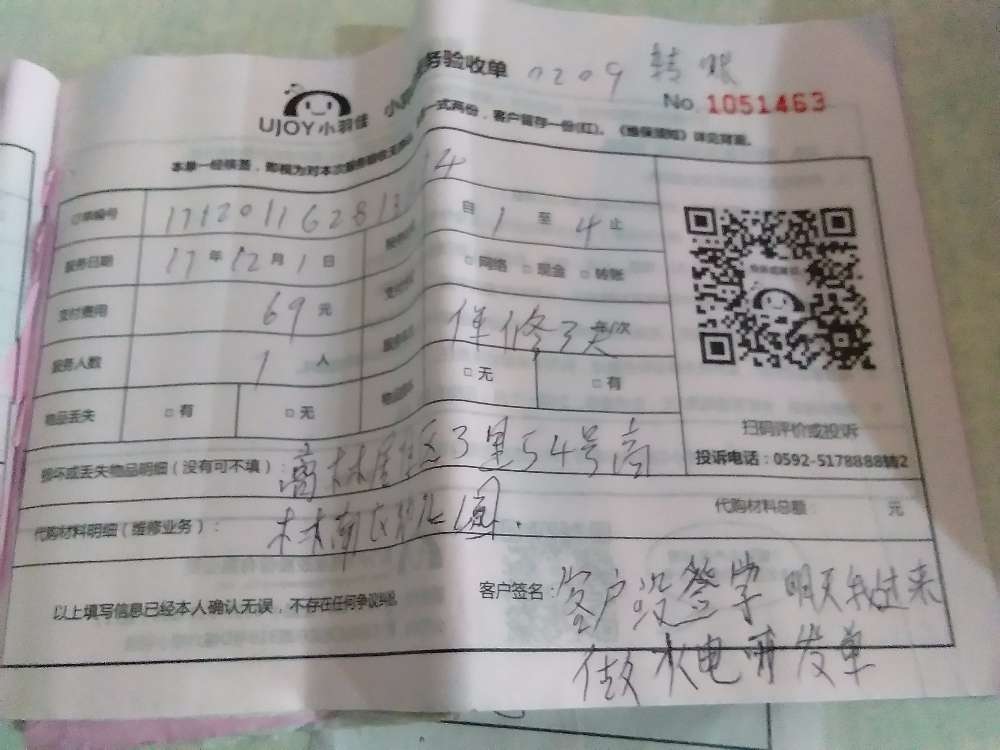 务验收单 0209 转账
No. 1051463
UJOY小羽佳 小
本单一经核盖，即视为对本次服务验收 一式两份，客户留存一份(红)。《维保须知》详见背面。
订单编号 171201162813 4 自 1 至 4 止
服务日期 17 年 12 月 1 日 □网络 □现金 □转账
支付费用 69 元 保修3天
服务人数 1 人 □无 □有
物品丢失 □有 □无 物品
扫码评价或投诉
投诉电话：0592-5178888转2
损坏或丢失物品明细（没有可不填）： 高林居住区3里54号高
代购材料明细（维修业务）： 林南区 公园. 代购材料总额： 元
以上填写信息已经本人确认无误，不存在任何争议纠纷 客户签名： 客户没签字 明天我过来
做水电 发单